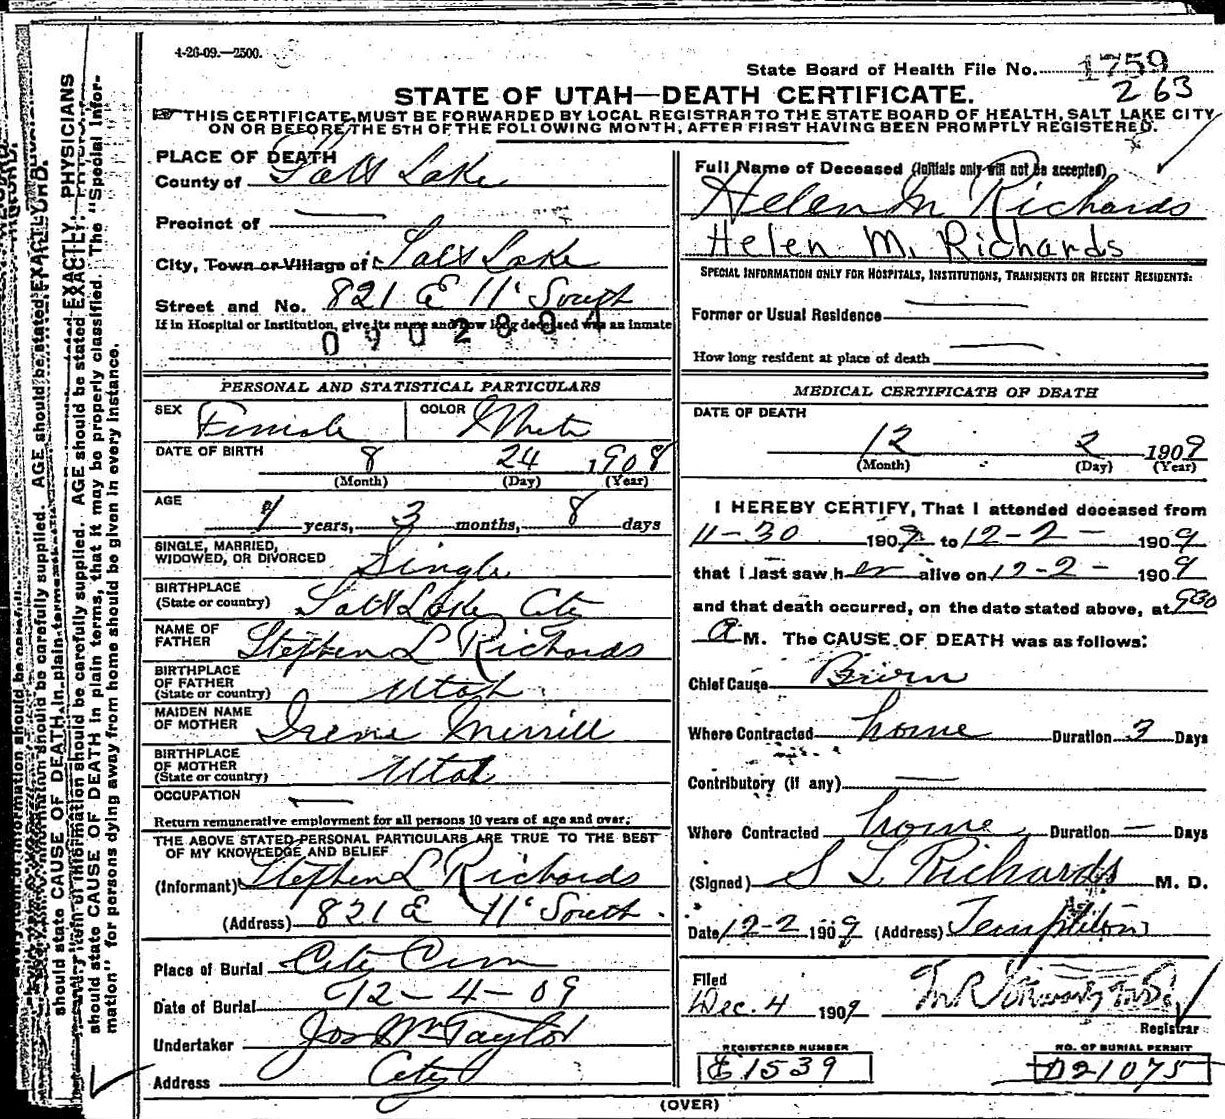 4-26-09.—2500.
State Board of Health File No. 1759
263
STATE OF UTAH—DEATH CERTIFICATE.
THIS CERTIFICATE MUST BE FORWARDED BY LOCAL REGISTRAR TO THE STATE BOARD OF HEALTH, SALT LAKE CITY
ON OR BEFORE THE 5TH OF THE FOLLOWING MONTH, AFTER FIRST HAVING BEEN PROMPTLY REGISTERED.
PLACE OF DEATH
County of Salt Lake
Precinct of —
City, Town or Village of Salt Lake
Street and No. 821 E 11' South
If in Hospital or Institution, give its name and how long deceased was an inmate
0902804
PERSONAL AND STATISTICAL PARTICULARS
SEX Female COLOR White
DATE OF BIRTH 8 24 1908
(Month) (Day) (Year)
AGE 1 years, 3 months, 8 days
SINGLE, MARRIED,
WIDOWED, OR DIVORCED Single
BIRTHPLACE
(State or country) Salt Lake City
NAME OF
FATHER Stephen L Richards
BIRTHPLACE
OF FATHER
(State or country) Utah
MAIDEN NAME
OF MOTHER Irene Merrill
BIRTHPLACE
OF MOTHER
(State or country) Utah
OCCUPATION —
Return remunerative employment for all persons 10 years of age and over.
THE ABOVE STATED PERSONAL PARTICULARS ARE TRUE TO THE BEST
OF MY KNOWLEDGE AND BELIEF
(Informant) Stephen L Richards
(Address) 821 E 11' South.
Place of Burial City Cem
Date of Burial 12-4-09
Undertaker Jos Wm Taylor
Address City
Full Name of Deceased (Initials only will not be accepted)
Helen M Richards
Helen M. Richards
SPECIAL INFORMATION ONLY FOR HOSPITALS, INSTITUTIONS, TRANSIENTS OR RECENT RESIDENTS:
Former or Usual Residence —
How long resident at place of death —
MEDICAL CERTIFICATE OF DEATH
DATE OF DEATH
12 2 1909
(Month) (Day) (Year)
I HEREBY CERTIFY, That I attended deceased from
11-30 1909 to 12-2- 1909
that I last saw her alive on 12-2- 1909
and that death occurred, on the date stated above, at 930
a M. The CAUSE OF DEATH was as follows:
Chief Cause Burn
Where Contracted home Duration 3 Days
Contributory (if any) —
Where Contracted home Duration — Days
(Signed) S L Richards M. D.
Date 12-2 1909 (Address) Templeton
Filed
Dec. 4 1909
Registrar
REGISTERED NUMBER
E 1539
NO. OF BURIAL PERMIT
D21075
(OVER)
should state CAUSE OF DEATH in plain terms, that it may be properly classified. The "Special Infor-
mation" for persons dying away from home should be given in every instance.